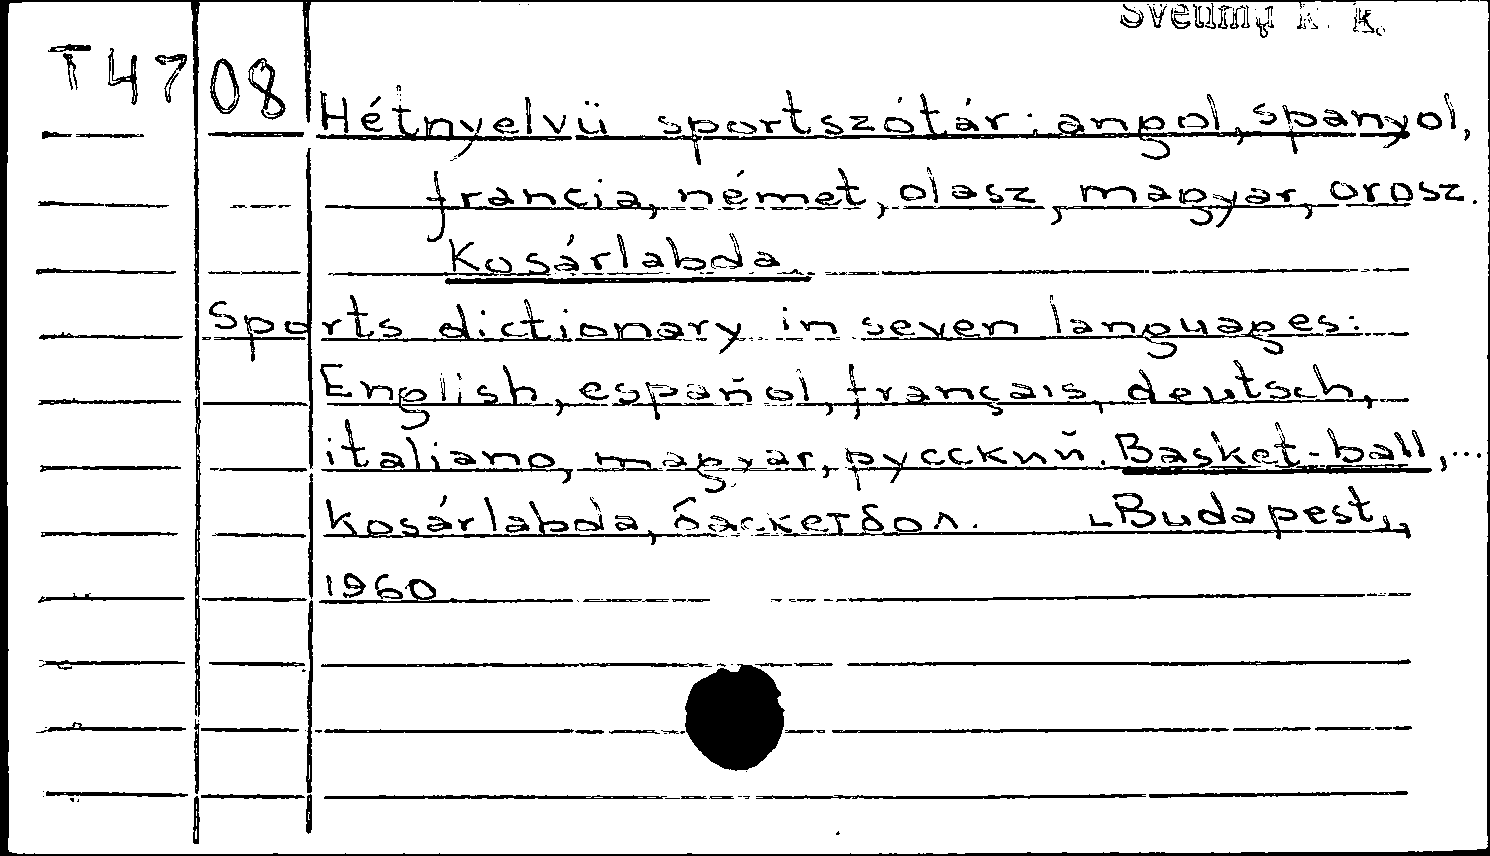 Svetimų k. k.
T47 08
Hétnyelvü sportszótár: angol, spanyol,
francia, német, olasz, magyar, orosz.
Kosárlabda.
Sports dictionary in seven languages:
English, español, français, deutsch,
italiano, magyar, русский. Basket-ball,...
kosárlabda, баскетбол. [Budapest],
1960.